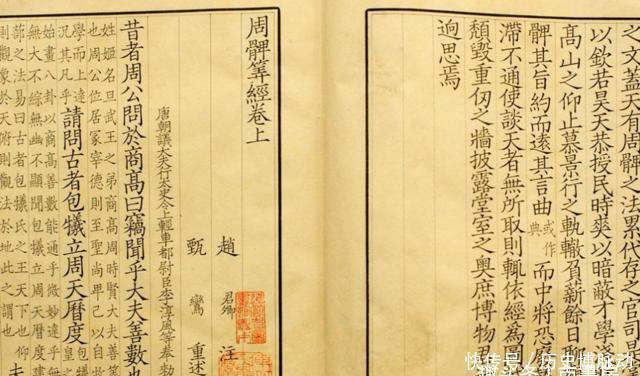 之文蓋天有周髀之法累代存之官司是
以欽若昊天恭授民時爽以暗蔽才學淺
高山之仰止慕景行之軌轍負薪餘日聊
髀其旨約而遠其言曲或作典而中將恐廢
滯不通使談天者無所取則輒依經為圖
頹毀重仞之牆披露堂室之奧庶博物君
迥思焉
周髀筭經卷上
趙君卿注
甄鸞重述
唐朝議大夫行太史令上輕車都尉臣李淳風等奉勅
昔者周公問於商高曰竊聞乎大夫善數也
姬姓名旦武王之弟商高周時賢大夫善算
也周公位居冢宰德則至聖尚卑己以自牧
學而上達
況其凡乎
請問古者包犧立周天曆度
皇之
始畫八卦以商高善數能通乎微妙達乎
無大不綜無幽不顯聞包犧立周天曆度建
蔀之法易曰古者包犧氏之王天下也仰
則觀象於天俯則觀法於地此之謂也
夫
快传号/历史博脉动